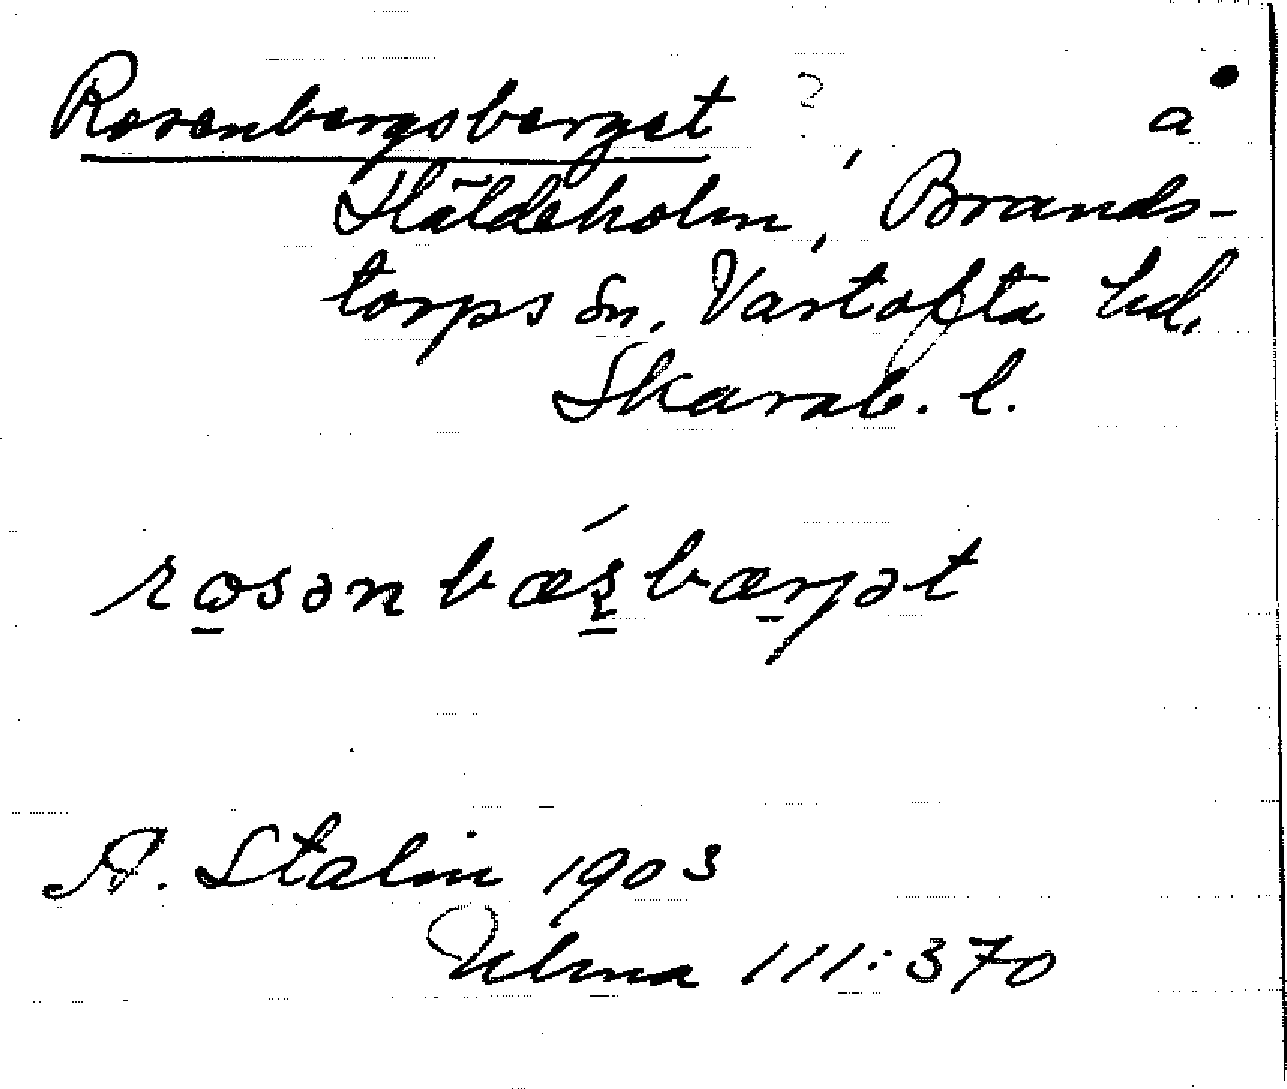 Rosenbergsberget ? å
Hältdeholm, Brands-
torps sn. Vartofta hd.
Skarab. l.
rɷsən bæʂbærjət
A. Stalin 1903
Ulma 111:370